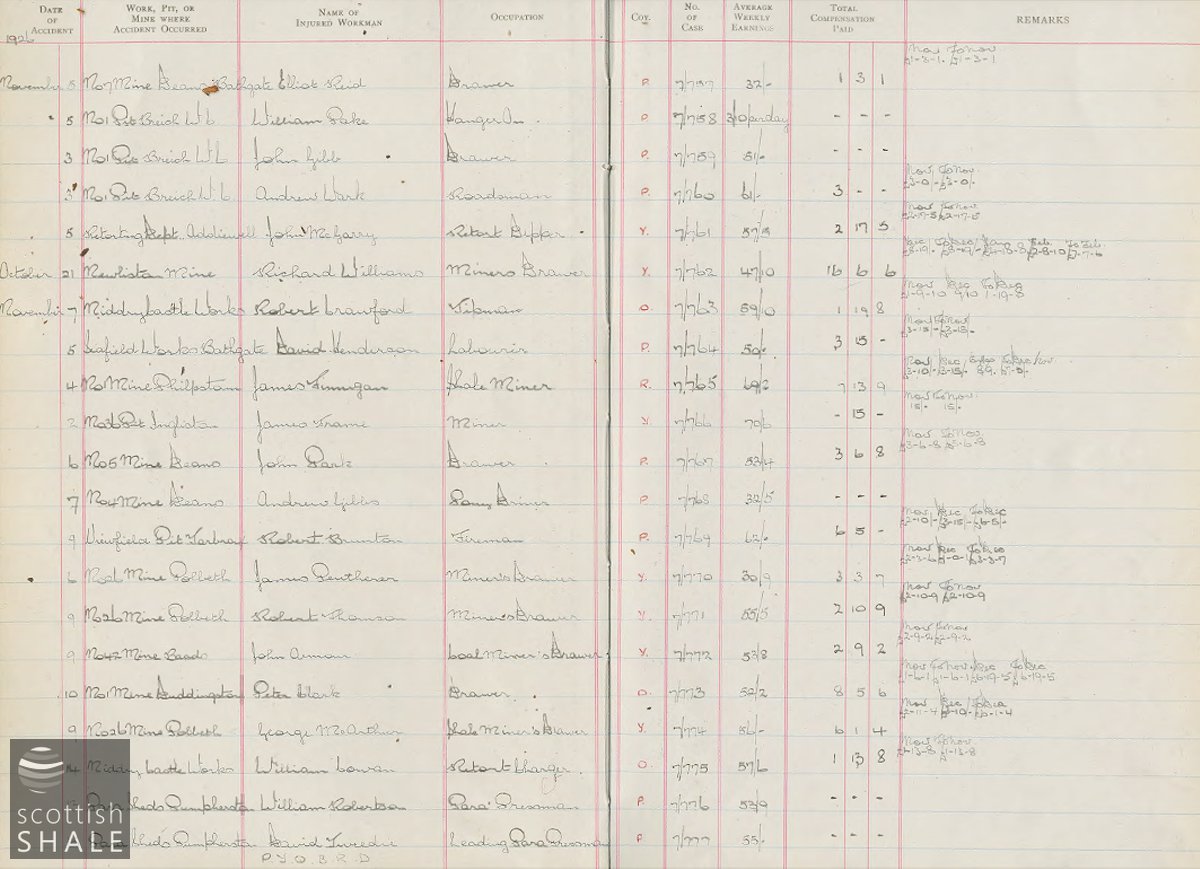 DATE OF ACCIDENT WORK, PIT, OR MINE WHERE ACCIDENT OCCURRED NAME OF INJURED WORKMAN OCCUPATION COY. NO. OF CASE AVERAGE WEEKLY EARNINGS TOTAL COMPENSATION PAID REMARKS
1926
Nov To Nov
£1-3-1. £1-3-1
November 5 No 7 Mine Deans Bathgate Elliot Reid Drawer P. 7/757 32/- 1 3 1
5 No 1 Pit Breich W.C. William Pake Hanger On P 7/758 3/10 per day - - -
3 No 1 Pit Breich W.C. John Gibb Drawer P. 7/759 51/- - - -
Nov To Nov.
£3-0/- £3-0/-
3 No 1 Pit Breich W.C. Andrew Wark Roadsman P. 7/760 61/- 3 - -
Nov To Nov
£2-17-5 £2-17-5
5 Retorting Dept. Addiewell John McGarry Retort Dipper Y. 7/761 57/5 2 17 5
October 21 Newliston Mine Richard Williams Miners Drawer Y. 7/762 47/10 16 6 6
Nov Dec To Dec
November 7 Niddry Castle Works Robert Crawford Tipman O. 7/763 59/10 1 19 8
Nov To Nov
£3-15/- £3-15/-
5 Seafield Works Bathgate David Henderson Labourer P. 7/764 50/- 3 15 -
4 No 1 Mine Philpstoun James Finnigan Shale Miner R. 7/765 69/2 7 13 9
Nov To Nov.
15/- 15/-
2 No 36 Pit Ingliston James Frame Miner Y. 7/766 70/6 - 15 -
Nov To Nov
£3-6-8 £3-6-8
6 No 5 Mine Deans John Park Drawer P. 7/767 53/4 3 6 8
7 No 4 Mine Deans Andrew Gibbs Pony Driver P 7/768 32/5 - - -
Nov Dec To Dec
£2-10/- £3-15/- £6-5/-
9 Viewfield Pit Tarbrax Robert Brunton Fireman P. 7/769 62/- 6 5 -
Nov Dec To Dec
£2-3-6 £1-0-1 £3-3-7
6 No 26 Mine Polbeth James Pentherer Miner's Drawer Y. 7/770 30/9 3 3 7
Nov To Nov
£2-10-9 £2-10-9
9 No 26 Mine Polbeth Robert Thomson Miner's Drawer Y. 7/771 55/5 2 10 9
Nov To Nov
£2-9-2 £2-9-2
9 No 42 Mine Baads John Armour Coal Miner's Drawer Y. 7/772 53/8 2 9 2
Nov To Nov Dec To Dec
£1-6-1 £1-6-1 £6-19-5 £6-19-5
10 No 1 Mine Duddingston Peter Clark Drawer O. 7/773 52/2 8 5 6
Nov Dec To Dec
£2-11-4 £3-10/- £6-1-4
9 No 26 Mine Polbeth George McArthur Shale Miner's Drawer Y 7/774 56/- 6 1 4
Nov To Nov
£1-13-8 £1-13-8
14 Niddry Castle Works William Cowan Retort Charger. O. 7/775 57/6 1 13 8
Para Sheds Pumpherston William Robertson Para' Pressman P. 7/776 53/9 - - -
Para Sheds Pumpherston David Tweedie Leading Para Pressman P 7/777 55/- - - -
P. Y. O. B. R. D
scottish
SHALE